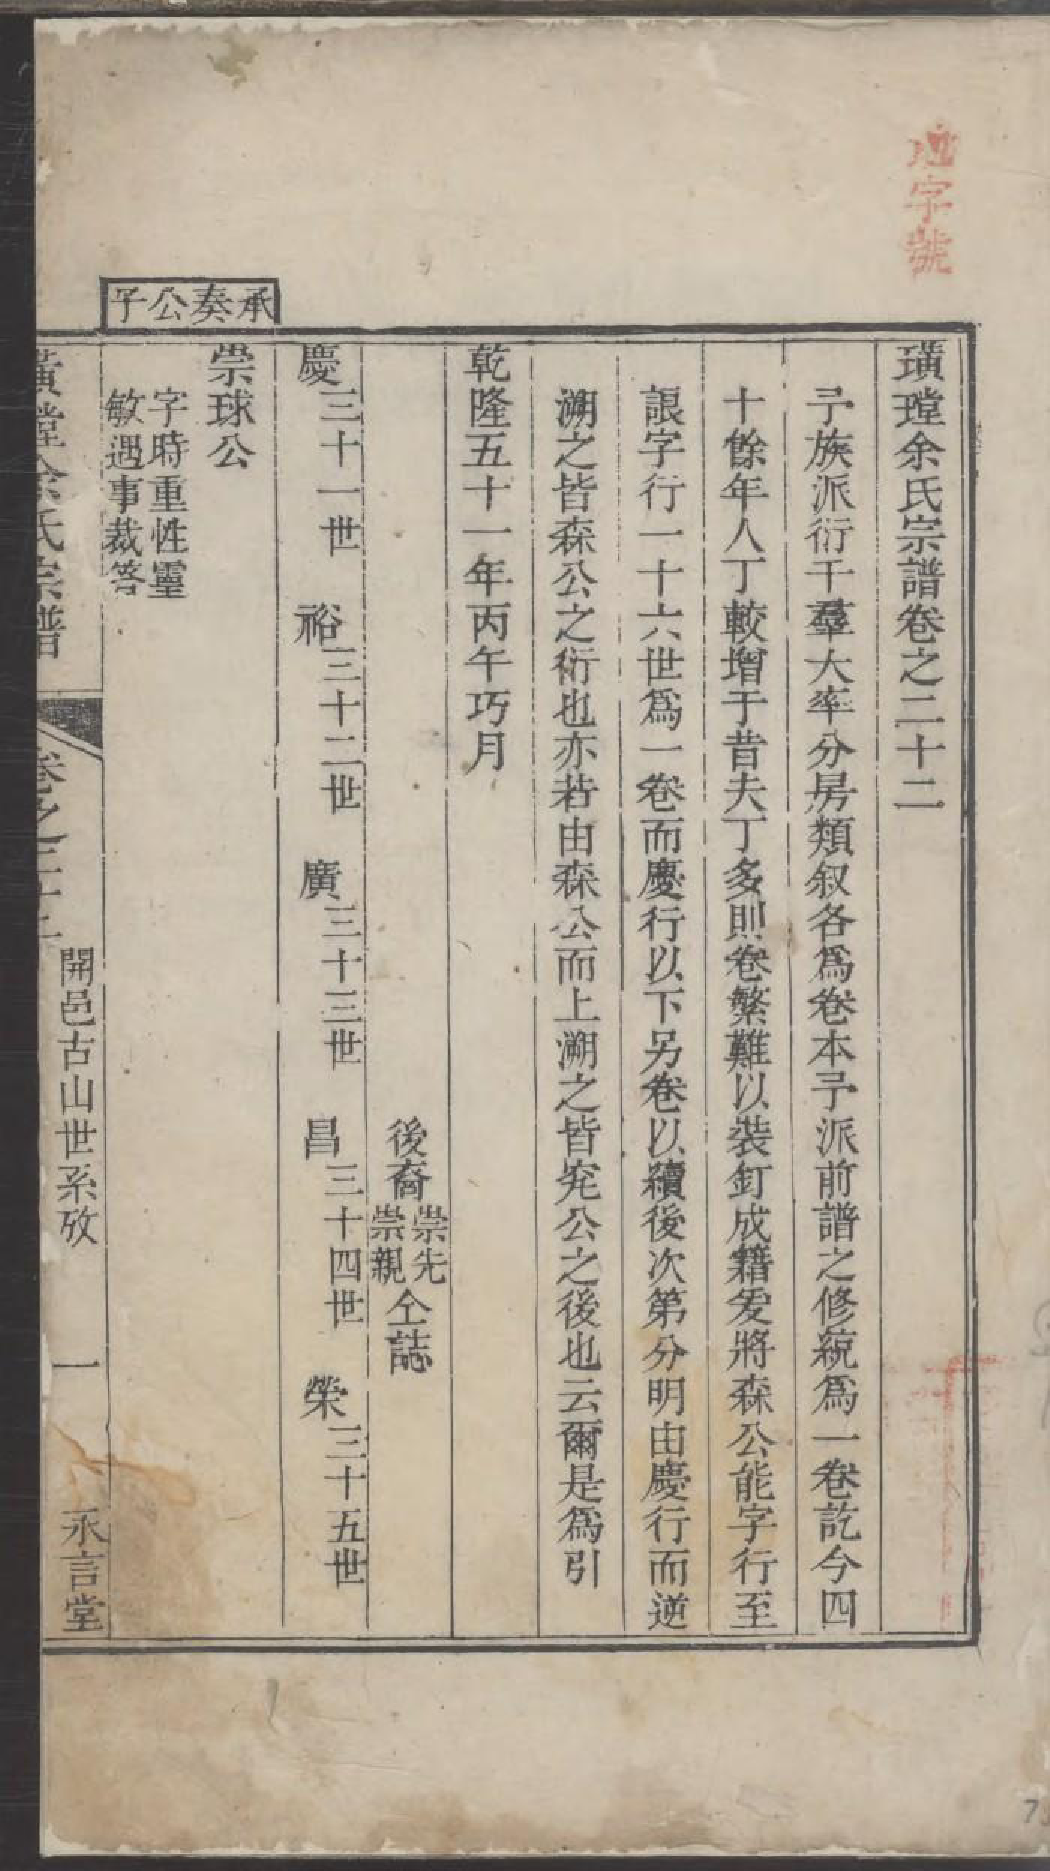 地字號
璜瑆余氏宗譜卷之二十二
予族派衍千羣大率分房類叙各爲卷本予派前譜之修統爲一卷訖今四
十餘年人丁較增于昔夫丁多則卷繁難以裝釘成籍爰將森公能字行至
誏字行一十六世爲一卷而慶行以下另卷以續後次第分明由慶行而逆
溯之皆森公之衍也亦若由森公而上溯之皆兖公之後也云爾是爲引
乾隆五十一年丙午巧月
後裔崇先崇親仝誌
慶三十一世 裕三十二世 廣三十三世 昌三十四世 榮三十五世
承奏公子
崇球公
字時重性靈
敏遇事裁答
璜瑆余氏宗譜 卷之二十二 開邑古山世系攷 一 永言堂